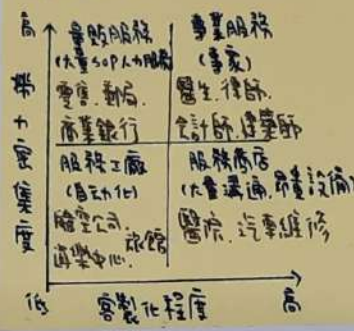 高
量販服務
(大量SOP人力服務)
零售、郵局、
商業銀行
事業服務
(專家)
醫生、律師、
會計師、建築師
勞力密集度
服務工廠
(自動化)
航空公司、
旅館
遊樂中心、
服務商店
(大量溝通、昂貴設備)
醫院、汽車維修
低
客製化程度
高